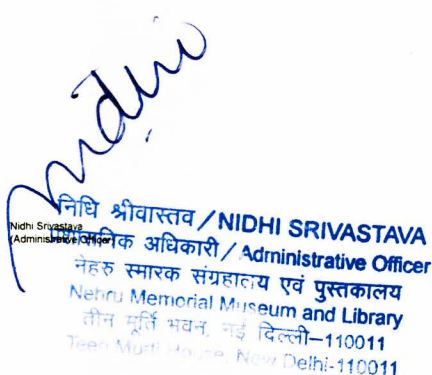 Nidhi
Nidhi Srivastava
(Administrative Officer)
निधि श्रीवास्तव / NIDHI SRIVASTAVA
प्रशासनिक अधिकारी / Administrative Officer
नेहरु स्मारक संग्रहालय एवं पुस्तकालय
Nehru Memorial Museum and Library
तीन मूर्ति भवन, नई दिल्ली–110011
Teen Murti House, New Delhi-110011